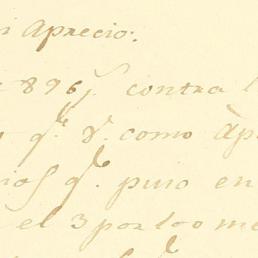 i Aprecio:
896,, contra l
q.e d.n como àp
ios q.e puso en
el 3 por 100 me